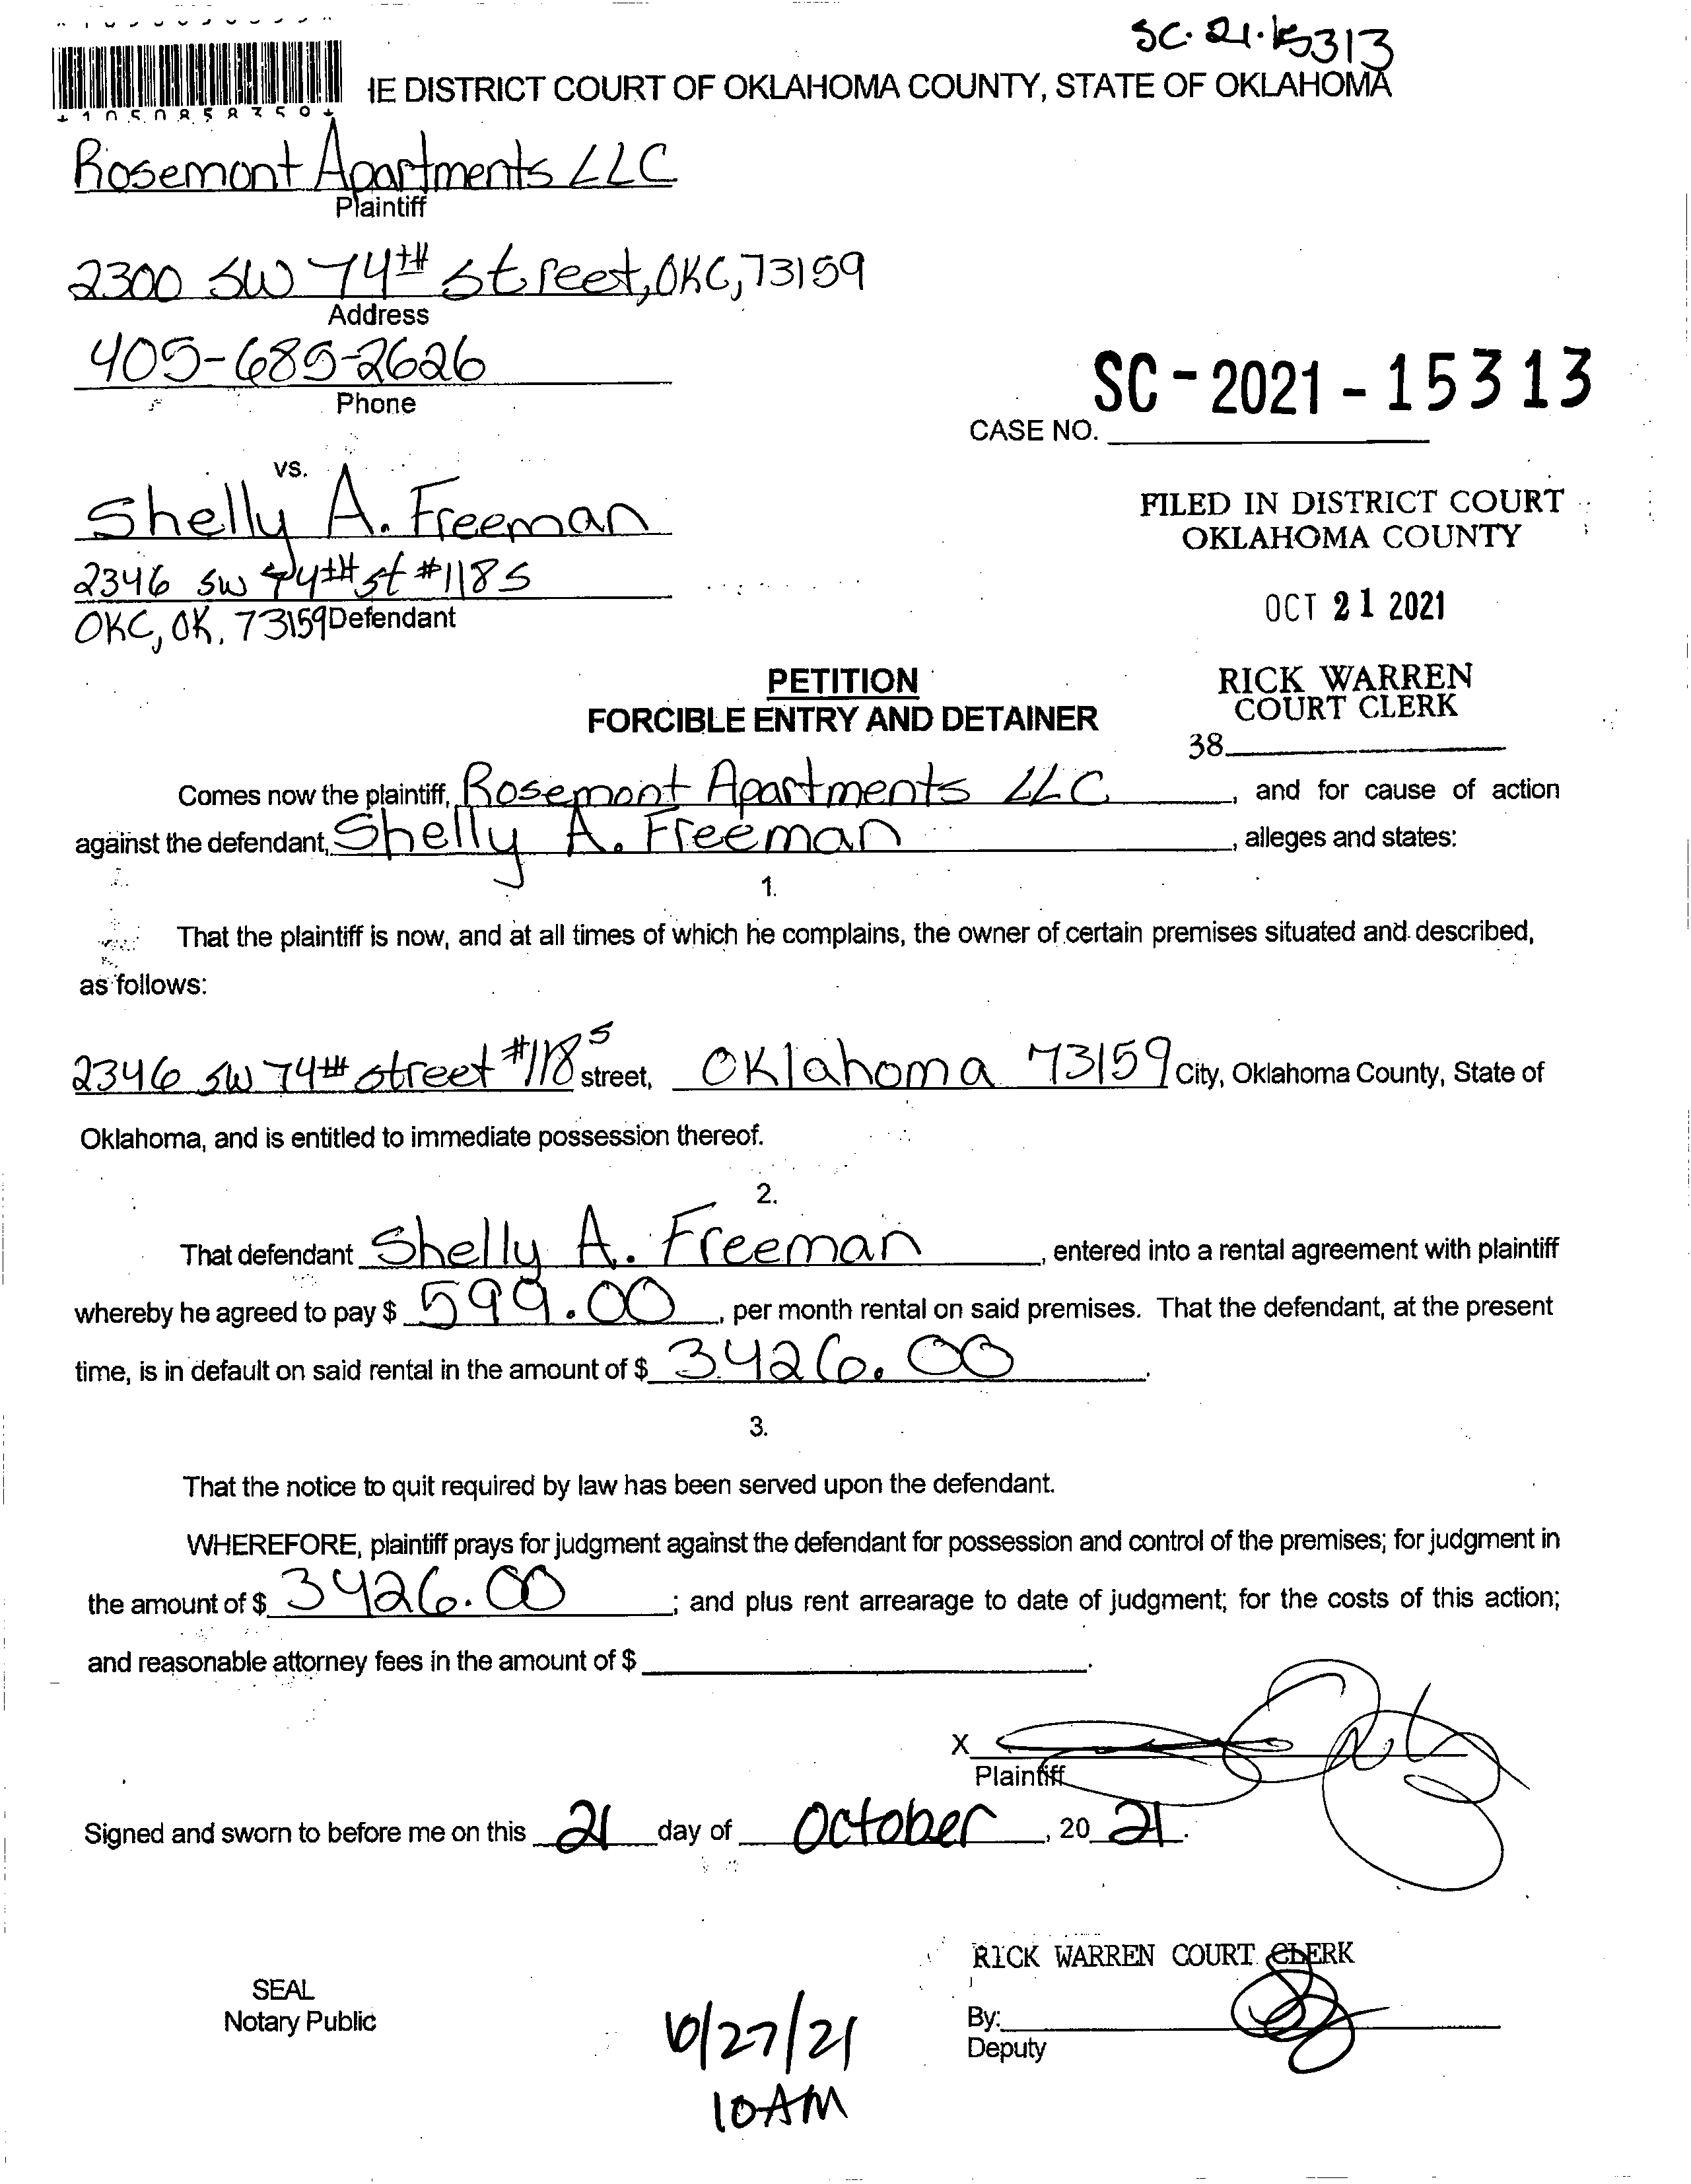 SC-21-15313
IE DISTRICT COURT OF OKLAHOMA COUNTY, STATE OF OKLAHOMA
Rosemont Apartments LLC
Plaintiff
2300 SW 74th Street, OKC, 73159
Address
405-685-2626
Phone
SC-2021-15313
CASE NO.
vs.
Shelly A. Freeman
2346 SW 74th st #118S
OKC, OK. 73159 Defendant
FILED IN DISTRICT COURT
OKLAHOMA COUNTY
OCT 21 2021
RICK WARREN
COURT CLERK
38
PETITION
FORCIBLE ENTRY AND DETAINER
Comes now the plaintiff, Rosemont Apartments LLC, and for cause of action
against the defendant, Shelly A. Freeman, alleges and states:
1.
That the plaintiff is now, and at all times of which he complains, the owner of certain premises situated and described,
as follows:
2346 SW 74th street #118S street, Oklahoma 73159 City, Oklahoma County, State of
Oklahoma, and is entitled to immediate possession thereof.
2.
That defendant Shelly A. Freeman, entered into a rental agreement with plaintiff
whereby he agreed to pay $ 599.00, per month rental on said premises. That the defendant, at the present
time, is in default on said rental in the amount of $ 3426.00.
3.
That the notice to quit required by law has been served upon the defendant.
WHEREFORE, plaintiff prays for judgment against the defendant for possession and control of the premises; for judgment in
the amount of $ 3426.00; and plus rent arrearage to date of judgment; for the costs of this action;
and reasonable attorney fees in the amount of $
X
Plaintiff
Signed and sworn to before me on this 21 day of October, 20 21.
RICK WARREN COURT CLERK
SEAL
Notary Public
By:
Deputy
10/27/21
10AM